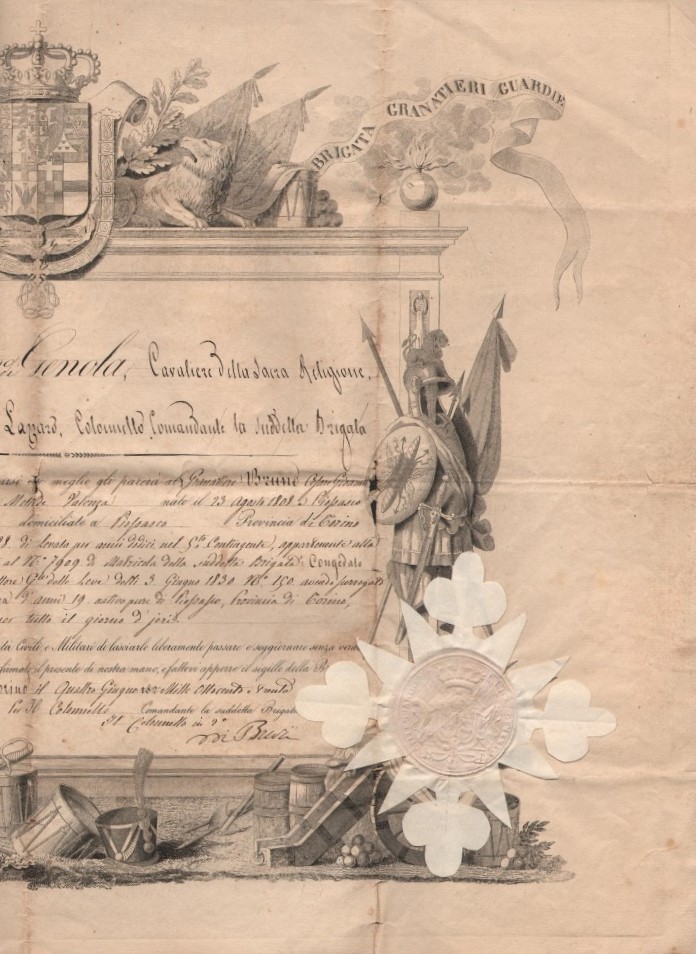 BRIGATA GRANATIERI GUARDIE
Genola, Cavaliere della Sacra Religione,
Lazzaro, Colonnello Comandante la suddetta Brigata
meglio gli parerà al Granatiere Bruno
Valenza nato il 23 Agosto 1808 a Piossasco
domiciliato a Piossasco Provincia di Torino
di Levata per anni dodici, nel 5.to Contingente, appartenente alla
al N.° 7909 di Matricola della suddetta Brigata, Congedato
delle Leve delli 3 Giugno 1830 N.° 150 avendo surrogato
d'anni 19 nativo pure di Piossasco, Provincia di Torino,
tutto il giorno d'jeri.
Civili e Militari di lasciarlo liberamente passare e soggiornare senza
il presente di nostra mano, e fattovi apporre il sigillo della
Torino il Quattro Giugno Mille Ottocento Trenta
Per Il Colonnello Comandante la suddetta Brigata
Il Colonnello in 2°